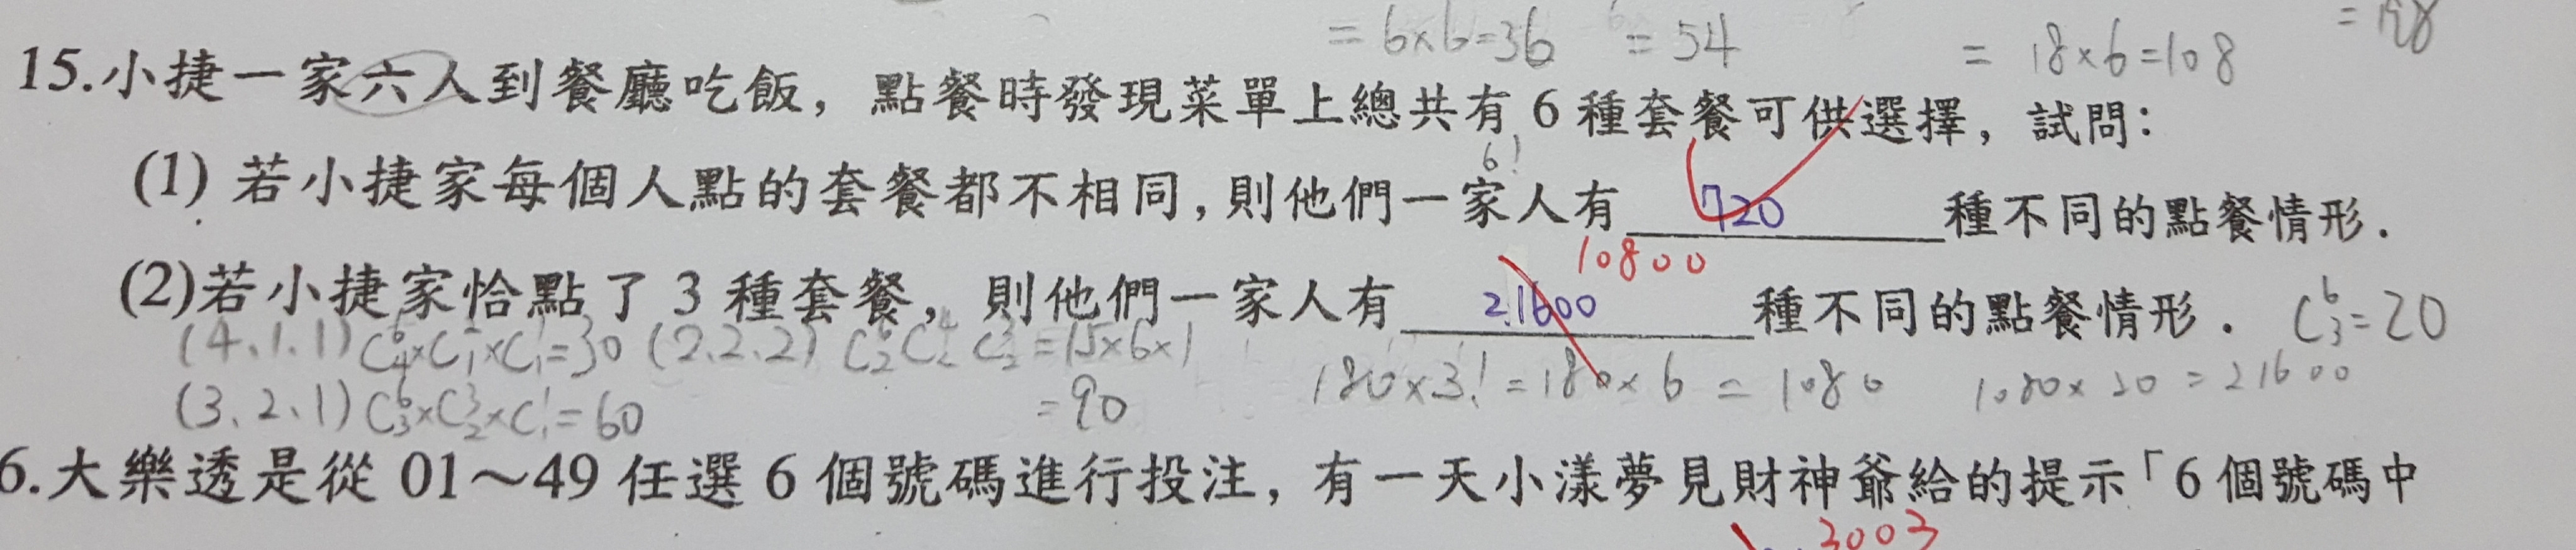 = 6×6=36 = 54 = 18×6=108
15.小捷一家六人到餐廳吃飯，點餐時發現菜單上總共有 6 種套餐可供選擇，試問：
6!
(1) 若小捷家每個人點的套餐都不相同，則他們一家人有 720 種不同的點餐情形．
10800
(2)若小捷家恰點了 3 種套餐，則他們一家人有 21600 種不同的點餐情形． C⁶₃=20
(4、1、1) C⁶₄×C²₁×C¹₁=30 (2、2、2) C⁶₂ C⁴₂ C²₂ =15×6×1
(3、2、1) C⁶₃×C³₂×C¹₁=60 =90 180×3!=180×6=1080 1080×20=21600
6.大樂透是從 01～49 任選 6 個號碼進行投注，有一天小漾夢見財神爺給的提示「6 個號碼中
3003